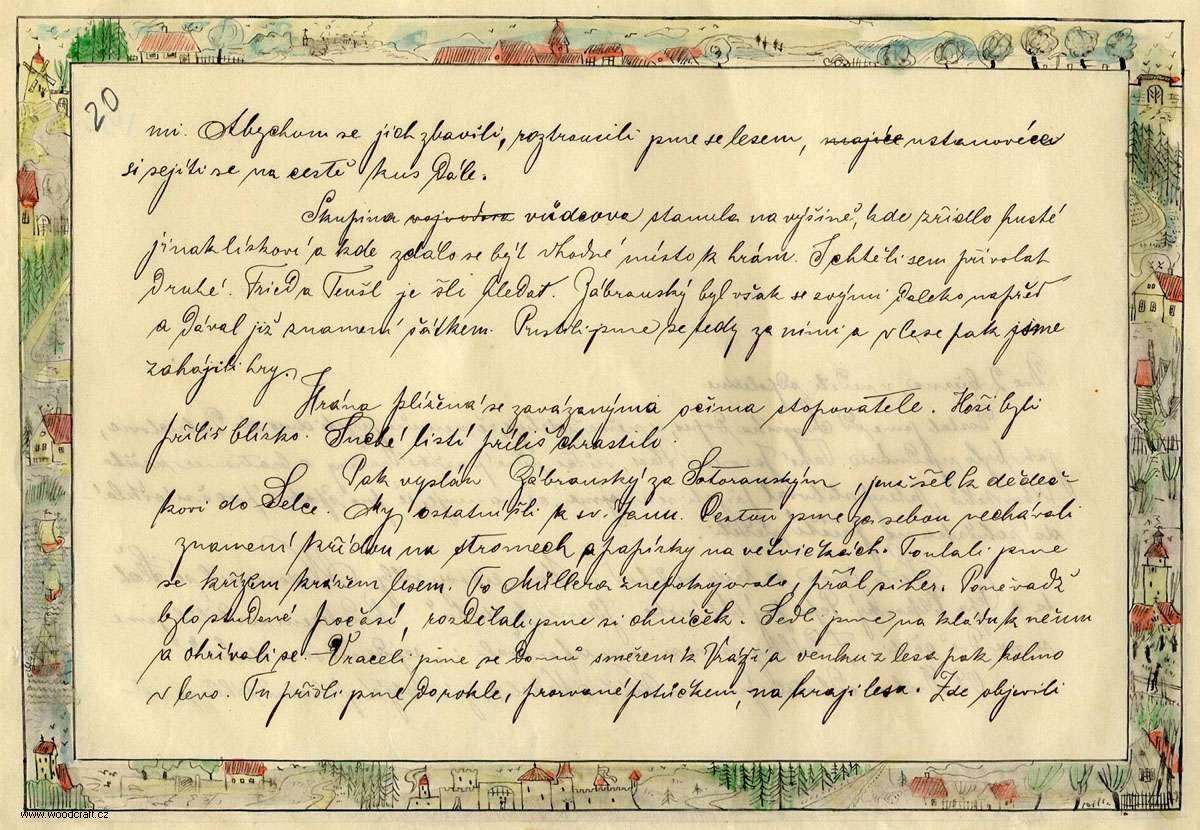 20
mi. Abychom se jich zbavili, roztrousili jsme se lesem, majíce ustanovíce
si sejíti se na cestě kus dále.
Skupina vojvodova vůdcova stanula na výšině, kde zřídlo husté
jinak lískoví a kde zdálo se být vhodné místo k hrám. I chtěli sem přivolat
druhé. Frieda Teušl je šli hledat. Zábranský byl však se svými daleko napřed
a dával již znamení šátkem. Pustili jsme se tedy za nimi a v lese pak jsme
zahájili hry.
Hrána plížená se zavázanýma očima stopovatele. Hoši byli
příliš blízko. Suché listí příliš chrastilo.
Pak vyslán Zábranský za Šotoranským, jenž šel k dědeč-
kovi do Selce. My ostatní šli k sv. Janu. Cestou jsme za sebou nechávali
znamení křídou na stromech a papírky na větvičkách. Toulali jsme
se křížem krážem lesem. To Müllera znepokojovalo, přál si her. Poněvadž
bylo studené počasí, rozdělali jsme si ohníček. Sedli jsme na kládu k němu
a ohřívali se. Vraceli jsme se domů směrem k Vráži a venku z lesa pak kolmo
v levo. Tu přišli jsme do rokle, prorvané potůčkem, na kraji lesa. Zde objevili
www.woodcraft.cz